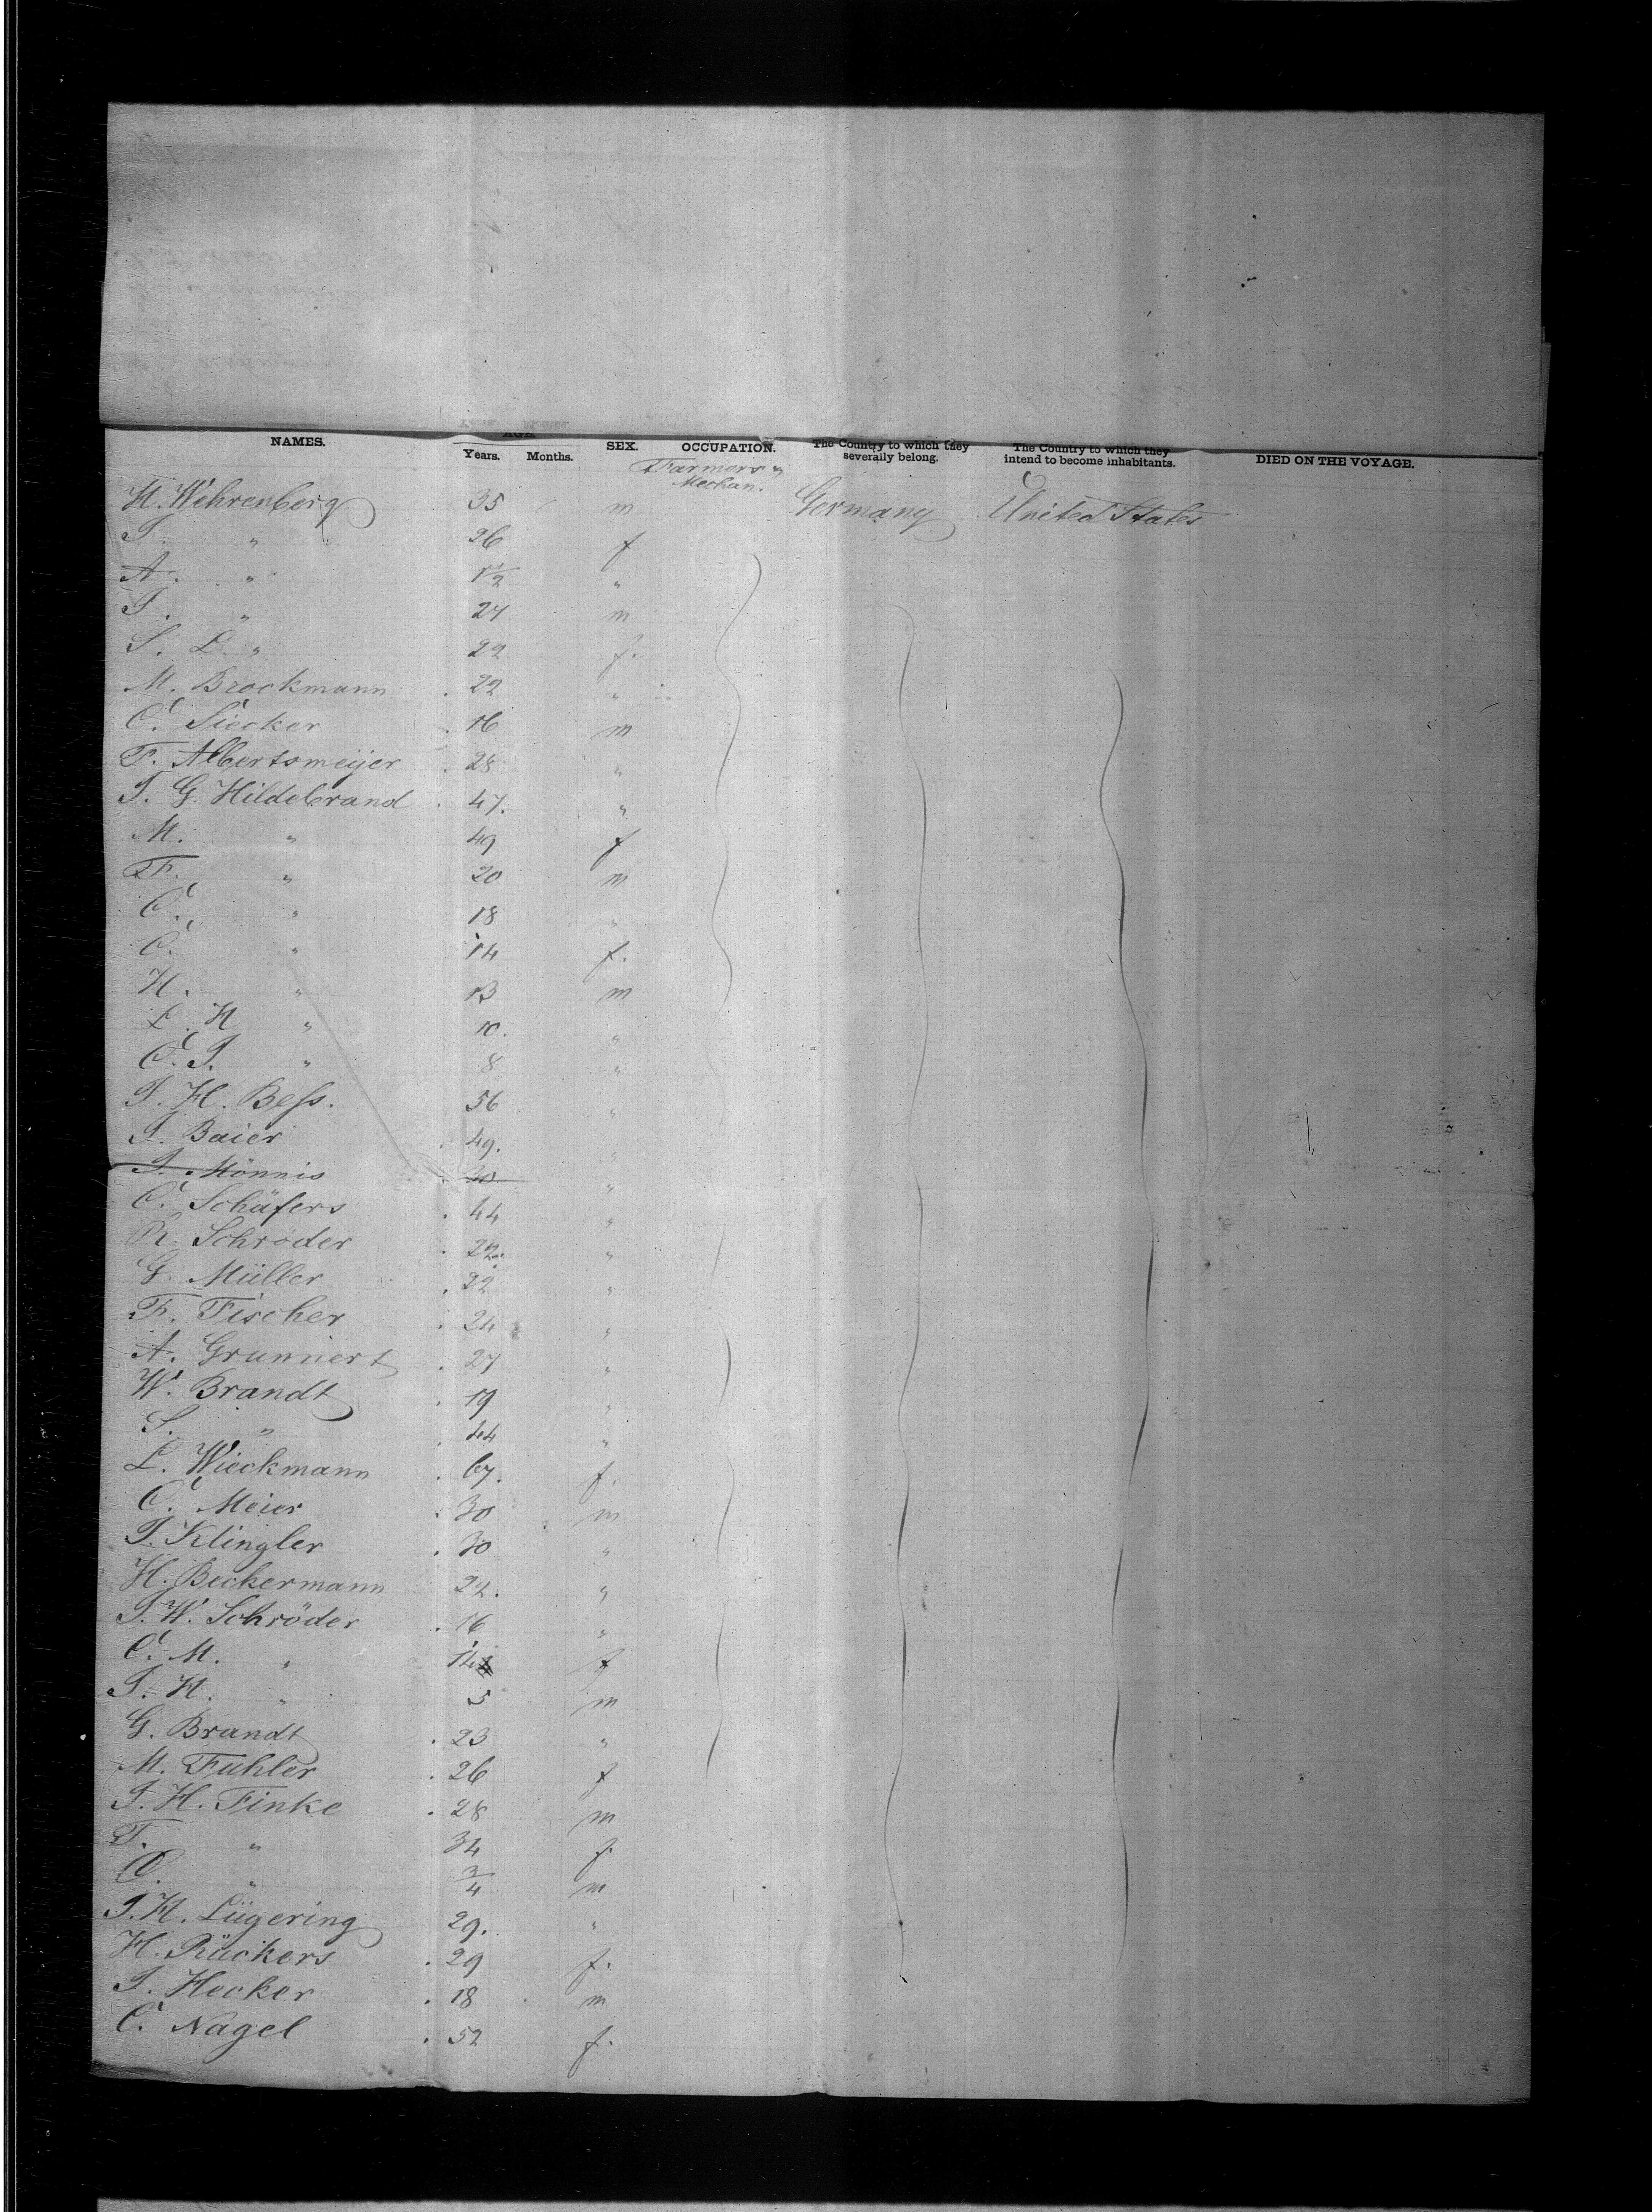 NAMES. AGE. SEX. OCCUPATION. The Country to which they severally belong. The Country to which they intend to become inhabitants. DIED ON THE VOYAGE.
Years. Months.
Farmers "
Mechan.
H. Wehrenberg 35 m Germany United States
T. " 26 f
A. " 1 1/2 "
T. " 27 m
S. L. " 22 f.
M. Brockmann . 22 "
C. Siecker . 16 m
F. Albertsmeijer . 28 "
J. G. Hildebrand . 47. "
M. " 49 f
F. " 20 m
C. " 18 "
C. " 14 f.
H. " 13 m
L. H " 10. "
C. J. " 8 "
J. H. Beſs. 56 "
J. Baier . 49. "
J. Mönnis . "
C. Schäfers . 44 "
R. Schröder . 22. "
G. Müller . 22 "
F. Fischer . 24 "
A. Grunnert . 27 "
W. Brandt . 19 "
S. " . 44 "
L. Wieckmann . 67. f.
C. Meier . 30 m
J. Klingler . 30 "
H. Beckermann 22. "
J. W. Schröder . 16 "
C. M. " 14 f
J. H. " 5 m
G. Brandt . 23 "
M. Fuhler . 26 f
J. H. Finke . 28 m
T. " 34 f.
C. " 3/4 m
J. H. Lügering 29. "
H. Rückers . 29 f.
J. Hecker . 18 m
C. Nagel . 52 f.